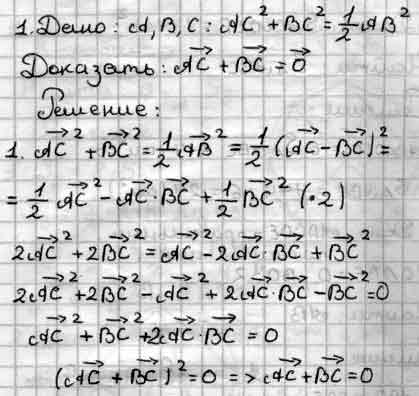 1. Дано: A, B, C: AC² + BC² = 1/2 AB²
Доказать: AC⃗ + BC⃗ = 0⃗
Решение:
1. AC⃗² + BC⃗² = 1/2 AB⃗² = 1/2 (AC⃗ - BC⃗)² =
= 1/2 AC⃗² - AC⃗ · BC⃗ + 1/2 BC⃗² (·2)
2AC⃗² + 2BC⃗² = AC⃗² - 2AC⃗ · BC⃗ + BC⃗²
2AC⃗² + 2BC⃗² - AC⃗² + 2AC⃗ · BC⃗ - BC⃗² = 0
AC⃗² + BC⃗² + 2AC⃗ · BC⃗ = 0
(AC⃗ + BC⃗)² = 0 => AC⃗ + BC⃗ = 0